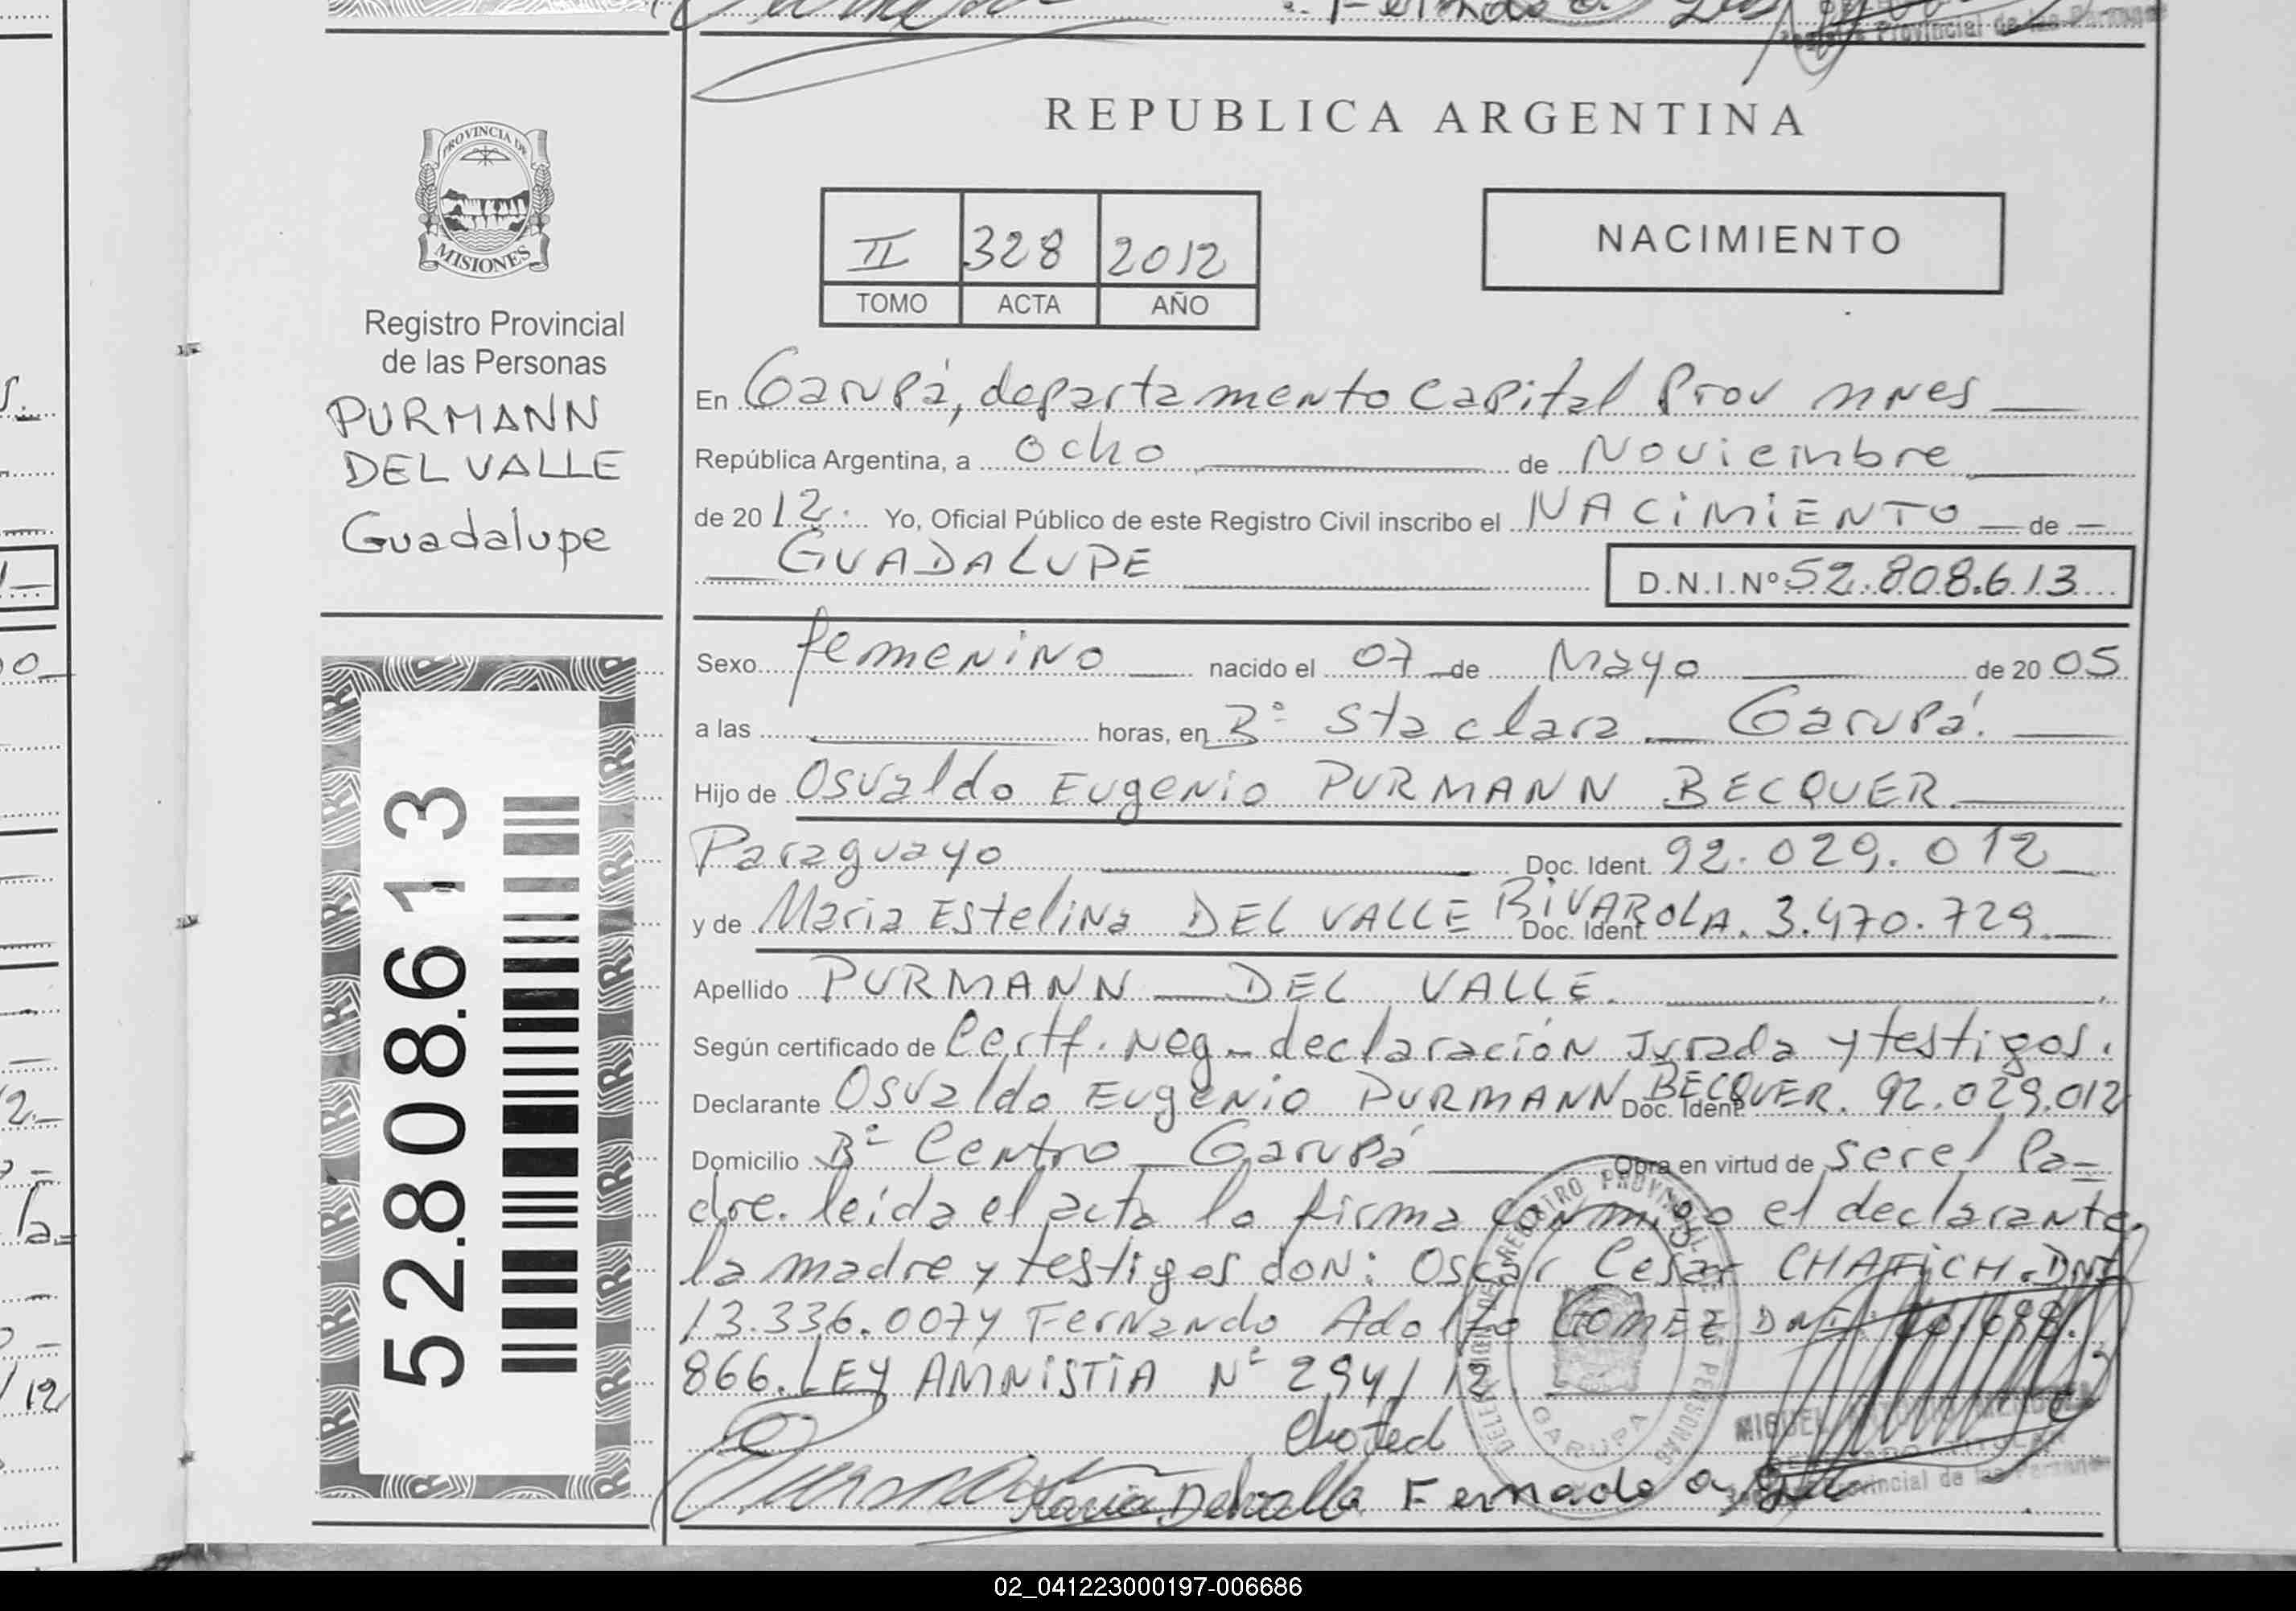 REPUBLICA ARGENTINA
PROVINCIA DE
MISIONES
Registro Provincial
de las Personas
PURMANN
DEL VALLE
Guadalupe
II 328 2012
TOMO ACTA AÑO
NACIMIENTO
En Garupá, departamento Capital Prov mnes
República Argentina, a ocho de Noviembre
de 2012. Yo, Oficial Público de este Registro Civil inscribo el NACIMIENTO de
GUADALUPE
D.N.I.Nº 52.808.613
Sexo femenino nacido el 07 de Mayo de 2005
a las horas, en Bº Sta clara _ Garupá.
Hijo de Osvaldo Eugenio PURMANN BECQUER
Paraguayo Doc. Ident. 92.029.012
y de Maria Estelina DEL VALLE RIVAROLA. Doc. Ident. 3.470.729
Apellido PURMANN _ DEL VALLE.
Según certificado de Certf. Neg_ declaración Jurada y testigos.
Declarante Osvaldo Eugenio PURMANN BECQUER. Doc. Ident. 92.029.012
Domicilio Bº Centro _ Garupá Obra en virtud de ser el Pa=
dre. leída el acta la firma conmigo el declarante,
la madre y testigos don: Oscar Cesar CHAFICH. DNI
13.336.007 y Fernando Adolfo GOMEZ DNI:
866. LEY AMNISTIA Nº 294/12
Maria Delvalle Fernado a
GARUPA
52.808.613
02_041223000197-006686